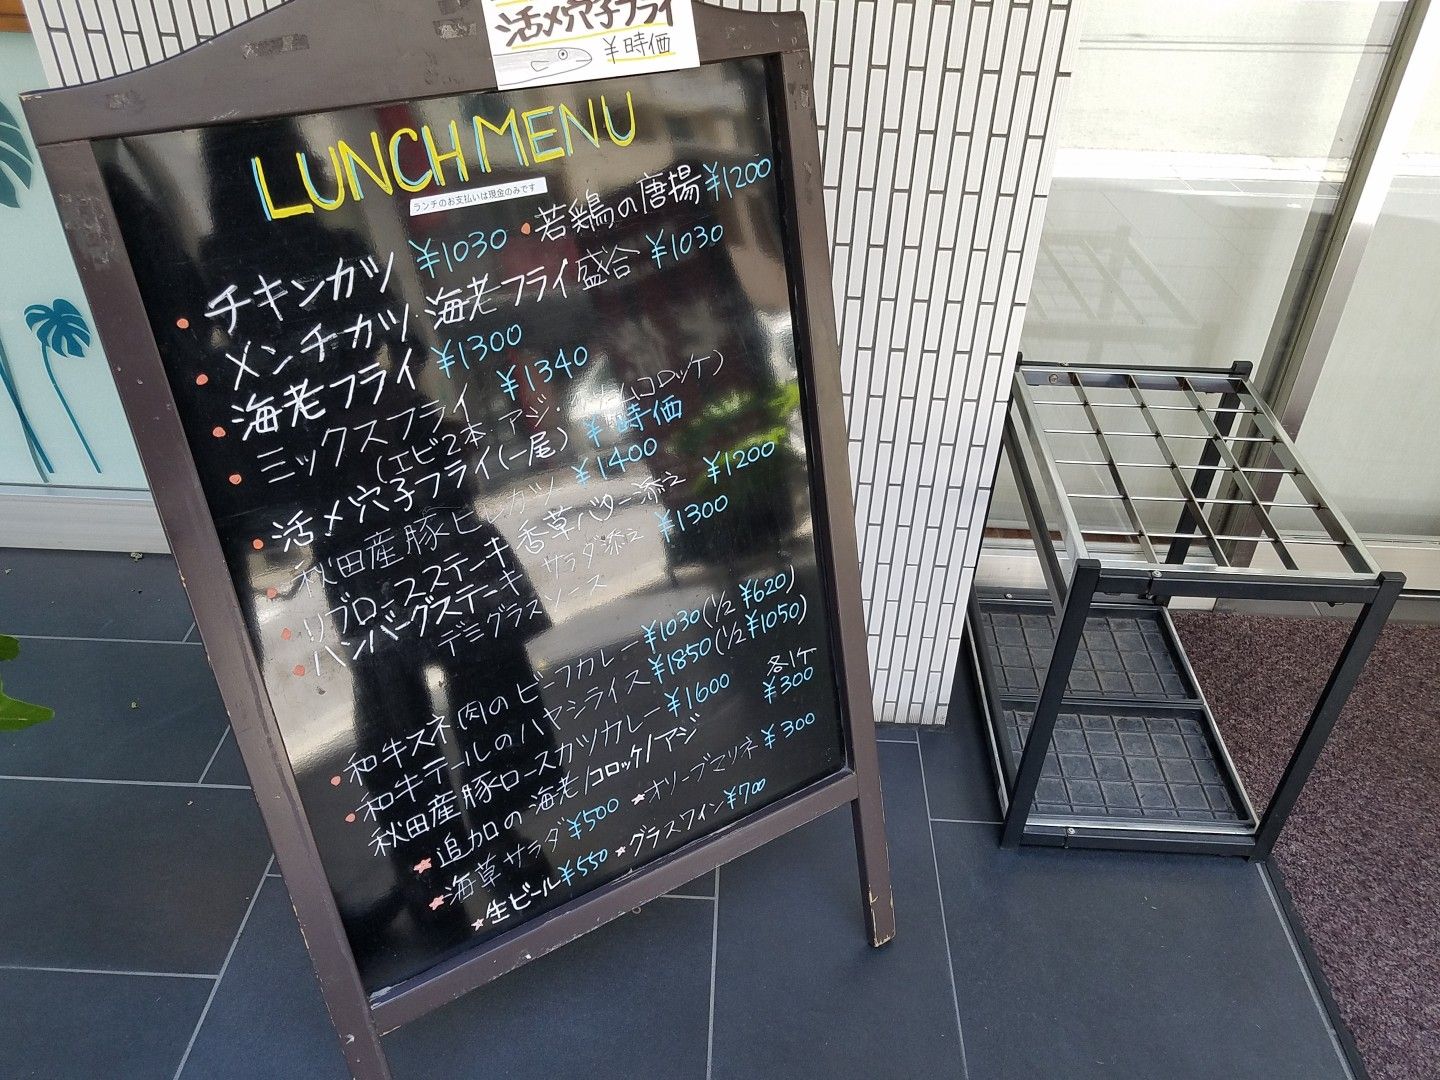 活〆穴子フライ
¥時価
LUNCH MENU
ランチのお支払いは現金のみです
・チキンカツ ¥1030 ・若鶏の唐揚 ¥1200
・メンチカツ・海老フライ盛合 ¥1030
・海老フライ ¥1300
・ミックスフライ ¥1340
(エビ2本 アジ・ コロッケ)
・活〆穴子フライ(一尾) ¥時価
・秋田産豚ヒレカツ ¥1400
・リブロースステーキ香草バター添え ¥1200
・ハンバーグステーキ サラダ添え ¥1300
デミグラスソース
・和牛スネ肉のビーフカレー ¥1030(1/2 ¥620)
・和牛テールのハヤシライス ¥1850(1/2 ¥1050)
秋田産豚ロースカツカレー ¥1600
★追加の海老/コロッケ/アジ 各1ケ ¥300
★海草サラダ ¥500 ★オリーブマリネ ¥300
★生ビール ¥550 ★グラスワイン ¥700